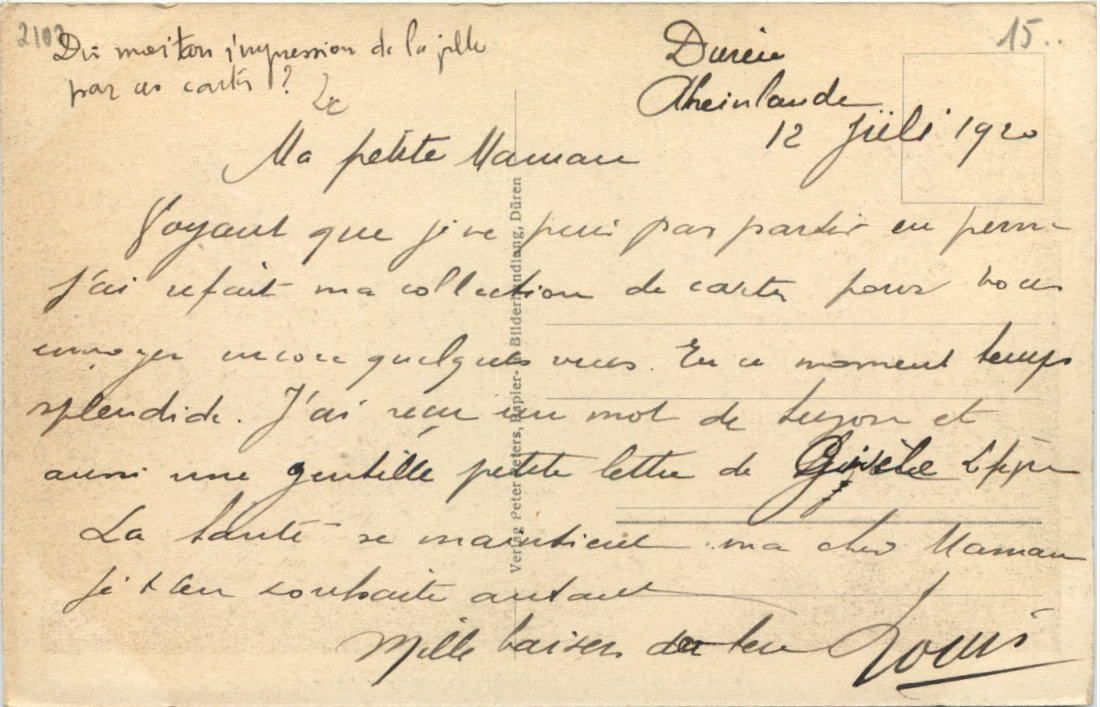 2102
15..
Dis moi ton impression de la ville
par ces cartes ?
Düren
Rheinlande
12 Jüli 1920
Ma petite Maman
Voyant que je ne puis pas partir en perm
j'ai refait ma collection de cartes pour vous
envoyer encore quelques vues. En ce moment temps
splendide. J'ai reçu un mot de et
aussi une gentille petite lettre de Gisèle
La Santé se maintient ma cher Maman
je t'en souhaite autant
Mille baisers de ton Louis
Verlag Peter Peters, Papier- u. Bilderhandlung, Düren